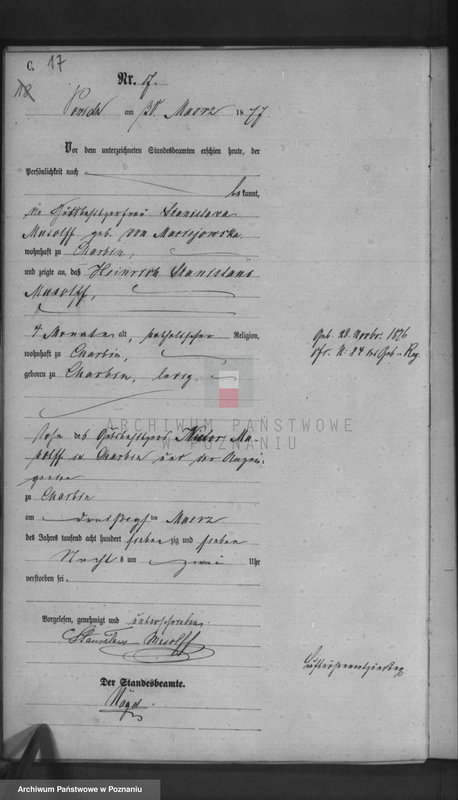 C. 17
18
Nr. 17.
am 30 Maerz 1877.
Vor dem unterzeichneten Standesbeamten erschien heute, der
Persönlichkeit nach
bekannt,
die Gutsbesitzerfrau Stanislawa
Musolff geb. von Maciejowska
wohnhaft zu Charbin,
und zeigte an, daß Heinrich Stanislaus
Musolff,
4 Monate alt, katholischer Religion,
wohnhaft zu Charbin,
geboren zu Charbin, ledig,
Geb. 28. Novbr. 1876
N: 84 des Geb. Reg.
ARCHIWUM PAŃSTWOWE
W POZNANIU
Sohn des Gutsbesitzers Mu-
solff in Charbin und der Anzei-
gerin
zu Charbin
am dreißigsten Maerz
des Jahres tausend acht hundert sieben zig und sieben
Nachts um zwei Uhr
verstorben sei.
Vorgelesen, genehmigt und unterschrieben.
Stanisława Musolff
Der Standesbeamte.
Archiwum Państwowe w Poznaniu